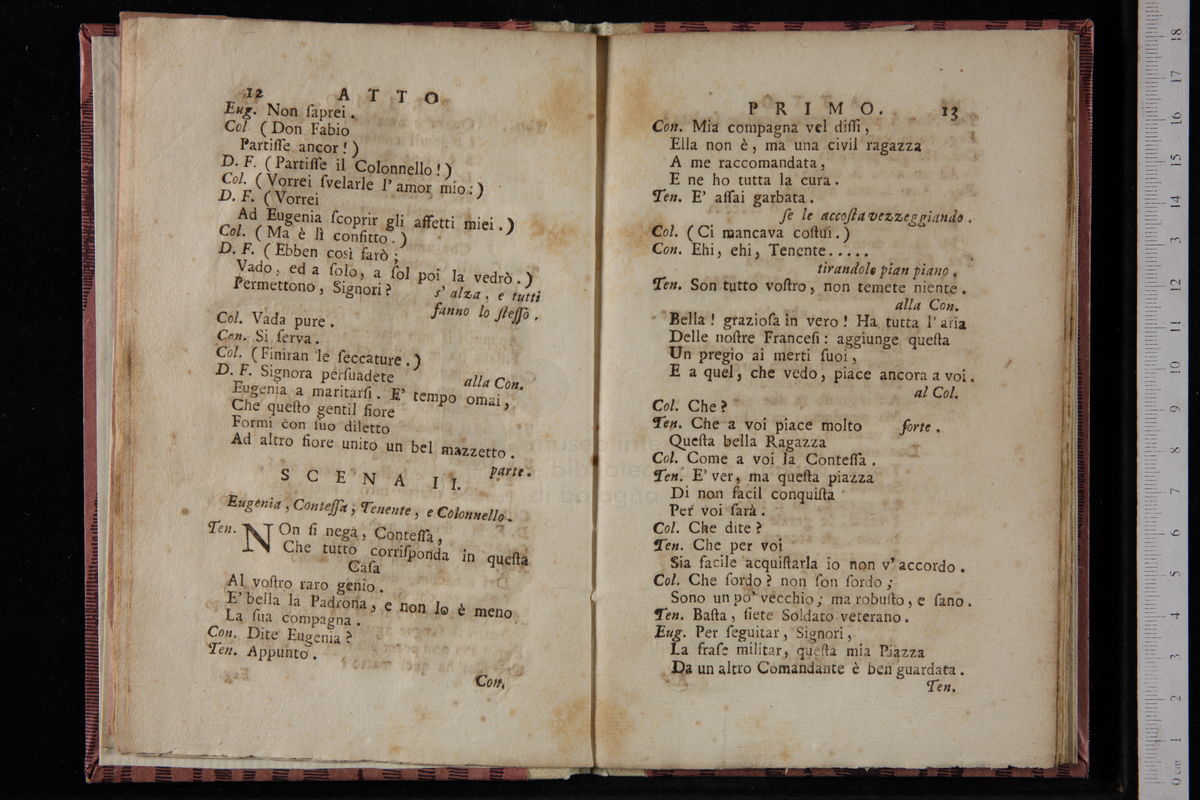 12 ATTO
Eug. Non ſaprei.
Col. (Don Fabio
Partiſſe ancor!)
D. F. (Partiſſe il Colonnello!)
Col. (Vorrei ſvelarle l'amor mio:)
D. F. (Vorrei
Ad Eugenia ſcoprir gli affetti miei.)
Col. (Ma è lì confitto.)
D. F. (Ebben così farò;
Vado, ed a ſolo, a ſol poi la vedrò.)
Permettono, Signori? s'alza, e tutti
fanno lo ſteſſo.
Col. Vada pure.
Con. Si ſerva.
Col. (Finiran le ſeccature.)
D. F. Signora perſuadete alla Con.
Eugenia a maritarſi. E' tempo omai,
Che queſto gentil fiore
Formi con ſuo diletto
Ad altro fiore unito un bel mazzetto.
parte.
SCENA II.
Eugenia, Conteſſa, Tenente, e Colonnello.
Ten. NOn ſi nega, Conteſſa,
Che tutto corriſponda in queſta
Caſa
Al voſtro raro genio.
E' bella la Padrona, e non lo è meno
La ſua compagna.
Con. Dite Eugenia?
Ten. Appunto.
Con.
PRIMO. 13
Con. Mia compagna vel diſſi,
Ella non è, ma una civil ragazza
A me raccomandata,
E ne ho tutta la cura.
Ten. E' aſſai garbata.
ſe le accoſta vezzeggiando.
Col. (Ci mancava coſtui.)
Con. Ehi, ehi, Tenente.....
tirandolo pian piano.
Ten. Son tutto voſtro, non temete niente.
alla Con.
Bella! grazioſa in vero! Ha tutta l'aria
Delle noſtre Franceſi: aggiunge queſta
Un pregio ai merti ſuoi,
E a quel, che vedo, piace ancora a voi.
al Col.
Col. Che?
Ten. Che a voi piace molto forte.
Queſta bella Ragazza
Col. Come a voi la Conteſſa.
Ten. E' ver, ma queſta piazza
Di non facil conquiſta
Per voi ſarà.
Col. Che dite?
Ten. Che per voi
Sia facile acquiſtarla io non v'accordo.
Col. Che ſordo? non ſon ſordo;
Sono un po' vecchio; ma robuſto, e ſano.
Ten. Baſta, ſiete Soldato veterano.
Eug. Per ſeguitar, Signori,
La fraſe militar, queſta mia Piazza
Da un altro Comandante è ben guardata.
Ten.
0 cm 1 2 3 4 5 6 7 8 9 10 11 12 13 14 15 16 17 18